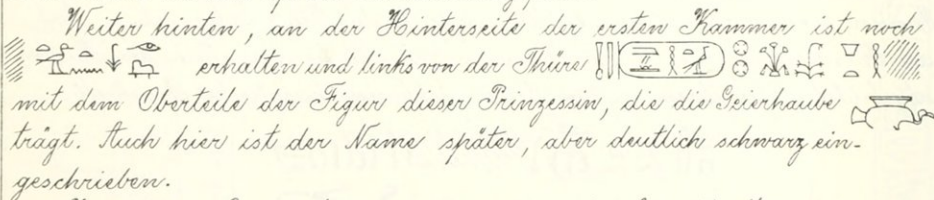 Weiter hinten, an der Hinterseite der ersten Kammer ist noch
erhalten und links von der Thüre
mit dem Oberteile der Figur dieser Prinzessin, die die Geierhaube
trägt. Auch hier ist der Name später, aber deutlich schwarz ein-
geschrieben.